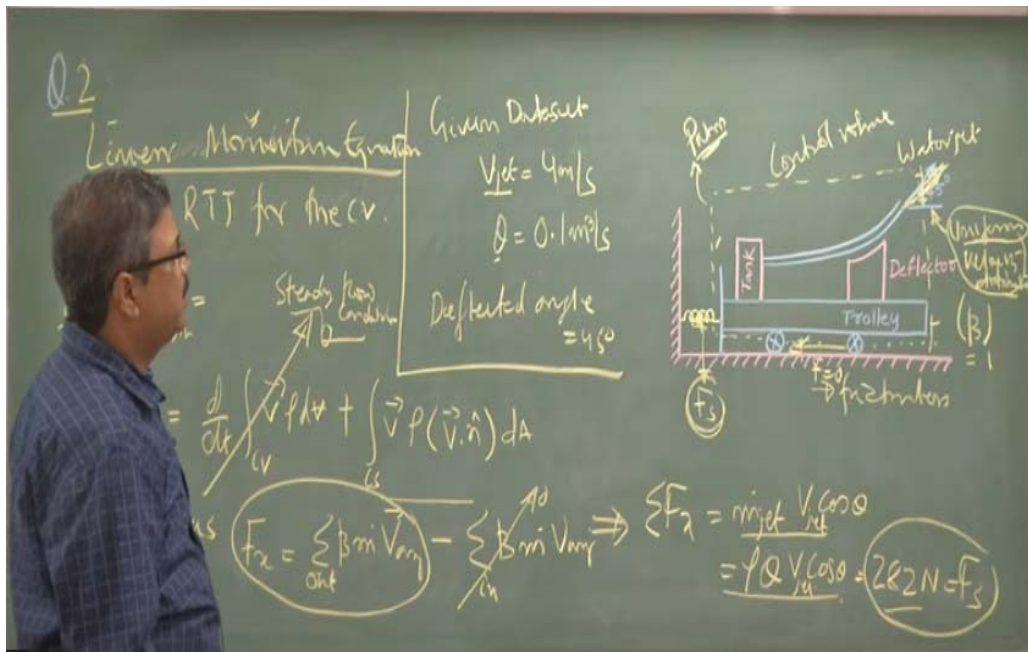 Q.2
Linear Momentum Equation
RTT for the CV.
=
Steady flow
Condition
0
= d/dt ∫CV V⃗ ρ d∀ + ∫CS V⃗ ρ (V⃗.n̂) dA
Fx = Σout βṁ V⃗avg - Σin βṁ Vavg 0 ⇒ ΣFx = ṁjet Vjet Cosθ
= ρQ Vjet Cosθ = 282N = Fs
Given Dataset
Vjet = 4m/s
Q = 0.1m³/s
Deflected angle
= 45°
Patm
Control volume
Water jet
45°
Uniform
Velocity
Tank
Deflector
Trolley
(β)
= 1
Fs
F=0
→ frictionless